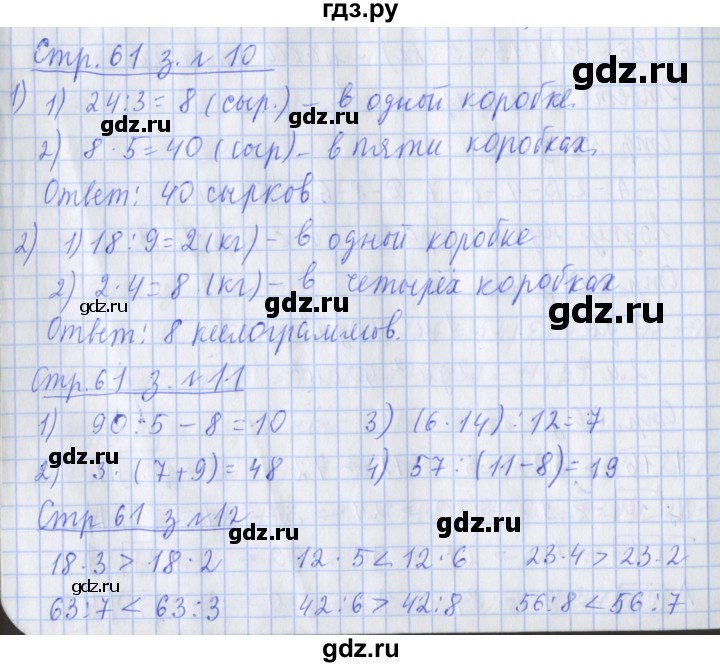 гдз.ру
Стр. 61 з. № 10
1) 1) 24:3=8 (сыр.) – в одной коробке.
2) 8·5=40 (сыр) – в пяти коробках.
Ответ: 40 сырков.
2) 1) 18:9=2 (кг) – в одной коробке
2) 2·4=8 (кг) – в четырёх коробках
Ответ: 8 килограммов.
Стр. 61 з. № 11
1) 90:5-8=10 3) (6·14):12=7
2) 3·(7+9)=48 4) 57:(11-8)=19
Стр 61 з № 12
18·3>18·2 12·5<12·6 23·4>23·2
63:7<63:3 42:6>42:8 56:8<56:7
gdz.ru
gdz.ru
gdz.ru
gdz.ru
gdz.ru
gdz.ru
gdz.ru
gdz.ru
gdz.ru
gdz.ru
gdz.ru